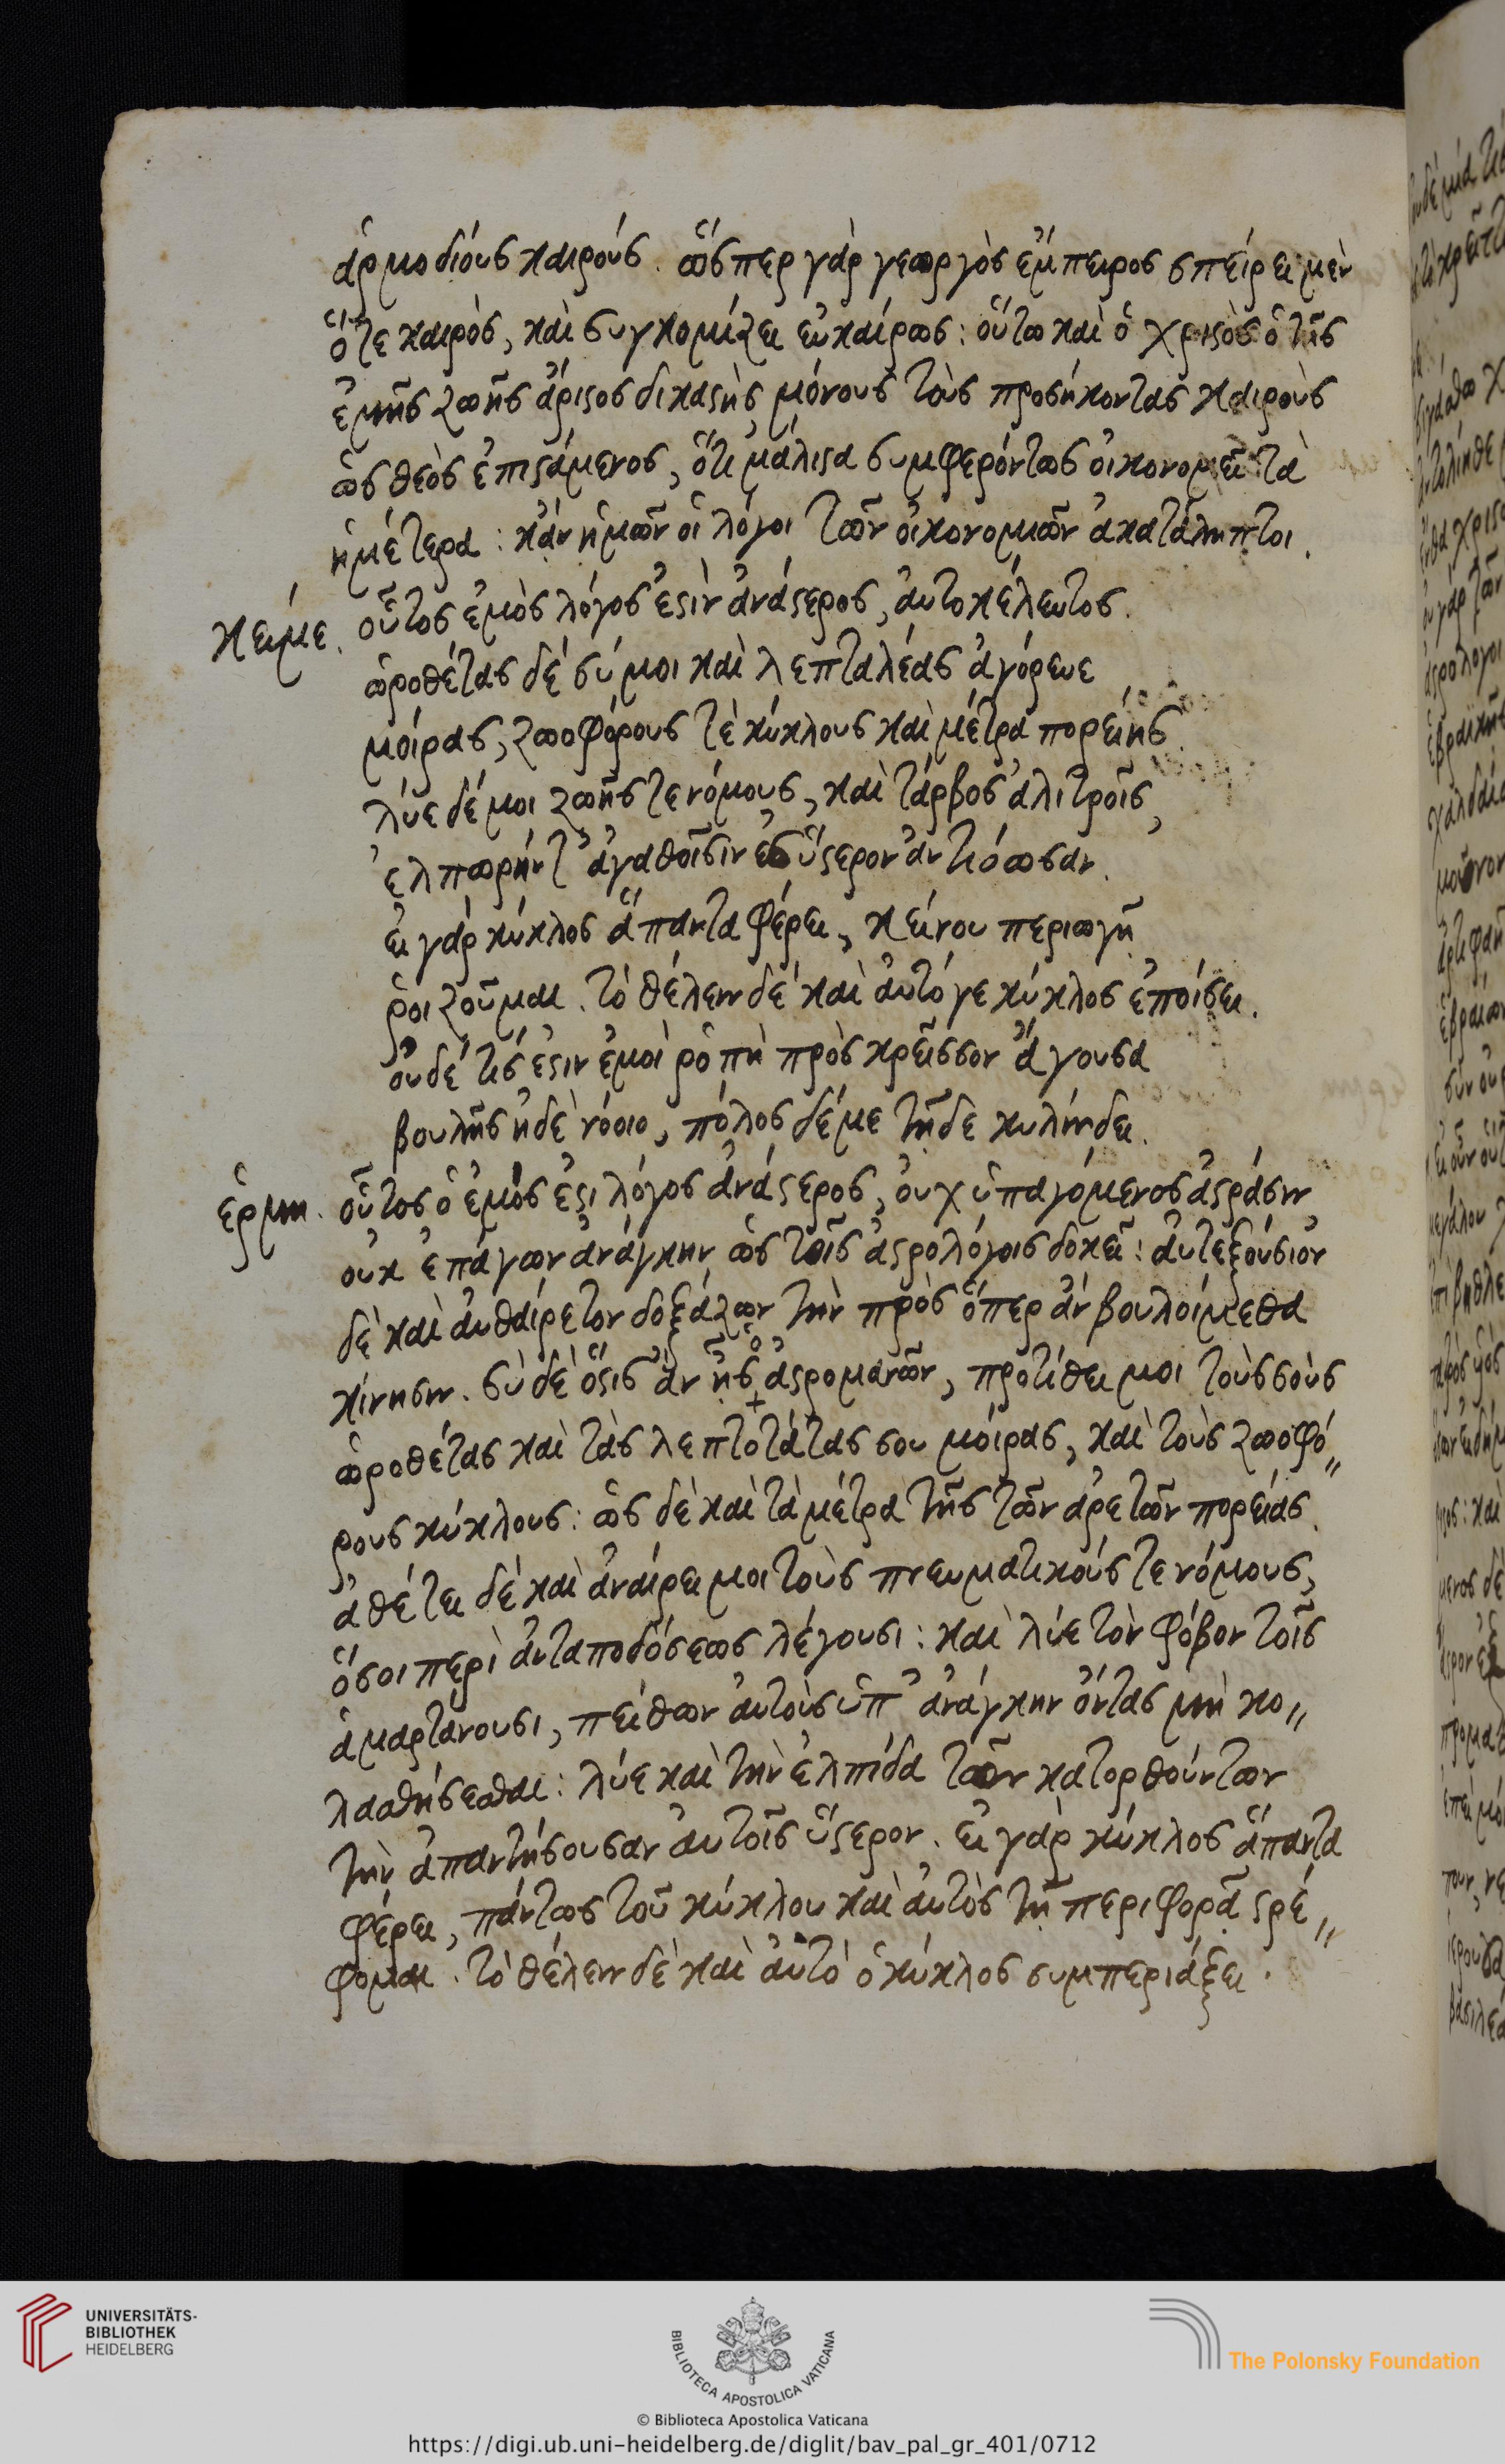 ἁρμοδίους καιρούς. ὥσπερ γὰρ γεωργὸς ἔμπειρος σπείρει μὲν
ὅτε καιρὸς, καὶ συγκομίζει εὐκαίρως: οὕτω καὶ ὁ χριϛὸς ὁ τῆς
ἐμῆς ζωῆς ἄριϛος δικαϛὴς μόνους τοὺς προσήκοντας καιροὺς
ὡς θεὸς ἐπιϛάμενος, ὅτι μάλιϛα συμφερόντως οἰκονομεῖ τὰ
ἡμέτερα: κἂν ἡμῶν οἱ λόγοι τῶν οἰκονομιῶν ἀκατάληπτοι.
κείμε. οὗτος ἐμὸς λόγος ἐϛὶν ἀνάϛερος, αὐτοκέλευτος.
ὡροθέτας δέ σύ μοι καὶ λεπταλέας ἀγόρευε
μοίρας, ζωοφόρους τὲ κύκλους καὶ μέτρα πορείης.
λύε δέ μοι ζωῆς τε νόμους, καὶ τάρβος ἀλιτροῖς,
ἐλπωρήν τ' ἀγαθοῖσιν ἐς ὕϛερον ἀντιόωσαν.
εἰ γὰρ κύκλος ἅπαντα φέρει, κείνου περιωγῆ
ῥοιζοῦμαι. τὸ θέλειν δέ καὶ αὐτό γε κύκλος ἐποίσει.
οὐδέ τίς ἐϛιν ἐμοὶ ῥοπὴ πρὸς κρεῖσσον ἄγουσα
βουλῆς ἠδὲ νόοιο, πόλος δέ με τῆδε κυλίνδει.
ἑρμη. οὗτος ὁ ἐμός ἐϛι λόγος ἀνάϛερος, οὐχ ὑπαγόμενος ἄϛράσιν,
οὐκ ἐπάγων ἀνάγκην ὡς τοῖς ἀϛρολόγοις δοκεῖ: αὐτεξούσιον
δὲ καὶ αὐθαίρετον δοξάζων τὴν πρὸς ὅπερ ἂν βουλοίμεθα
κίνησιν. σὺ δὲ ὅϛις ἂν ἦς ὁ ἀϛρομανῶν, προτίθει μοι τοὺς σοὺς
ὡροθέτας καὶ τὰς λεπτοτάτας σου μοίρας, καὶ τοὺς ζωοφό〃
ρους κύκλους: ὡς δὲ καὶ τὰ μέτρα τῆς τῶν ἀρετῶν πορείας.
ἀθέτει δὲ καὶ ἀναίρει μοι τοὺς πνευματικούς τε νόμους,
ὅσοι περὶ ἀνταποδόσεως λέγουσι: καὶ λύε τὸν φόβον τοῖς
ἁμαρτάνουσι, πείθων αὐτοὺς ὑπ' ἀνάγκην ὄντας μὴ κο〃
λασθήσεσθαι: λύε καὶ τὴν ἐλπίδα τῶν κατορθούντων
τὴν ἀπαντήσουσαν αὐτοῖς ὕϛερον. εἰ γὰρ κύκλος ἅπαντα
φέρει, πάντως τοῦ κύκλου καὶ αὐτὸς τῆ περιφορᾶ ϛρέ〃
φομαι. τὸ θέλειν δὲ καὶ αὐτὸ ὁ κύκλος συμπεριάξει.
UNIVERSITÄTS-
BIBLIOTHEK
HEIDELBERG
BIBLIOTECA APOSTOLICA VATICANA
The Polonsky Foundation
© Biblioteca Apostolica Vaticana
https://digi.ub.uni-heidelberg.de/diglit/bav_pal_gr_401/0712